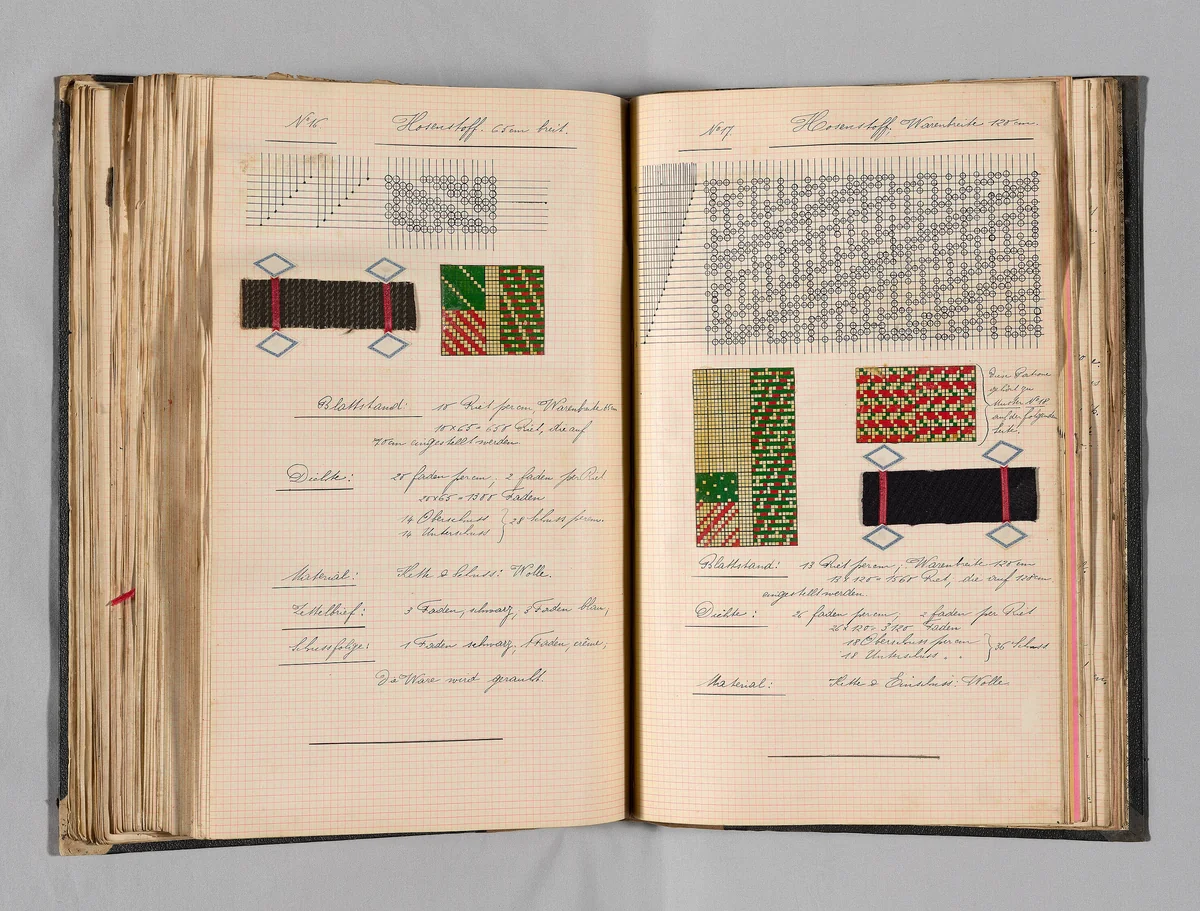 No 16
Hosenstoff. 65 cm breit.
Blattstand: 10 Riet per cm, Warenbreite 65 cm
10 x 65 = 650 Riet, die auf
70 cm eingestellt werden.
Dichte: 20 Faden per cm, 2 Faden per Riet
20 x 65 = 1300 Faden
14 Oberschuss
14 Unterschuss } 28 Schuss per cm.
Material: Kette & Schuss: Wolle.
Zettelbrief: 3 Faden, schwarz, 3 Faden blau,
Schussfolge: 1 Faden schwarz, 1 Faden, crème,
Die Ware wird geraubt.
No 17
Hosenstoff, Warenbreite 120 cm.
Diese Patrone
gehört zu
Muster No 18
auf der folgenden
Seite.
Blattstand: 13 Riet per cm, Warenbreite 120 cm
13 x 120 = 1560 Riet, die auf 128 cm
eingestellt werden.
Dichte: 26 Faden per cm, 2 Faden per Riet
26 x 120 = 3120 Faden
18 Oberschuss per cm
18 Unterschuss " " } 36 Schuss
Material: Kette & Einschuss: Wolle